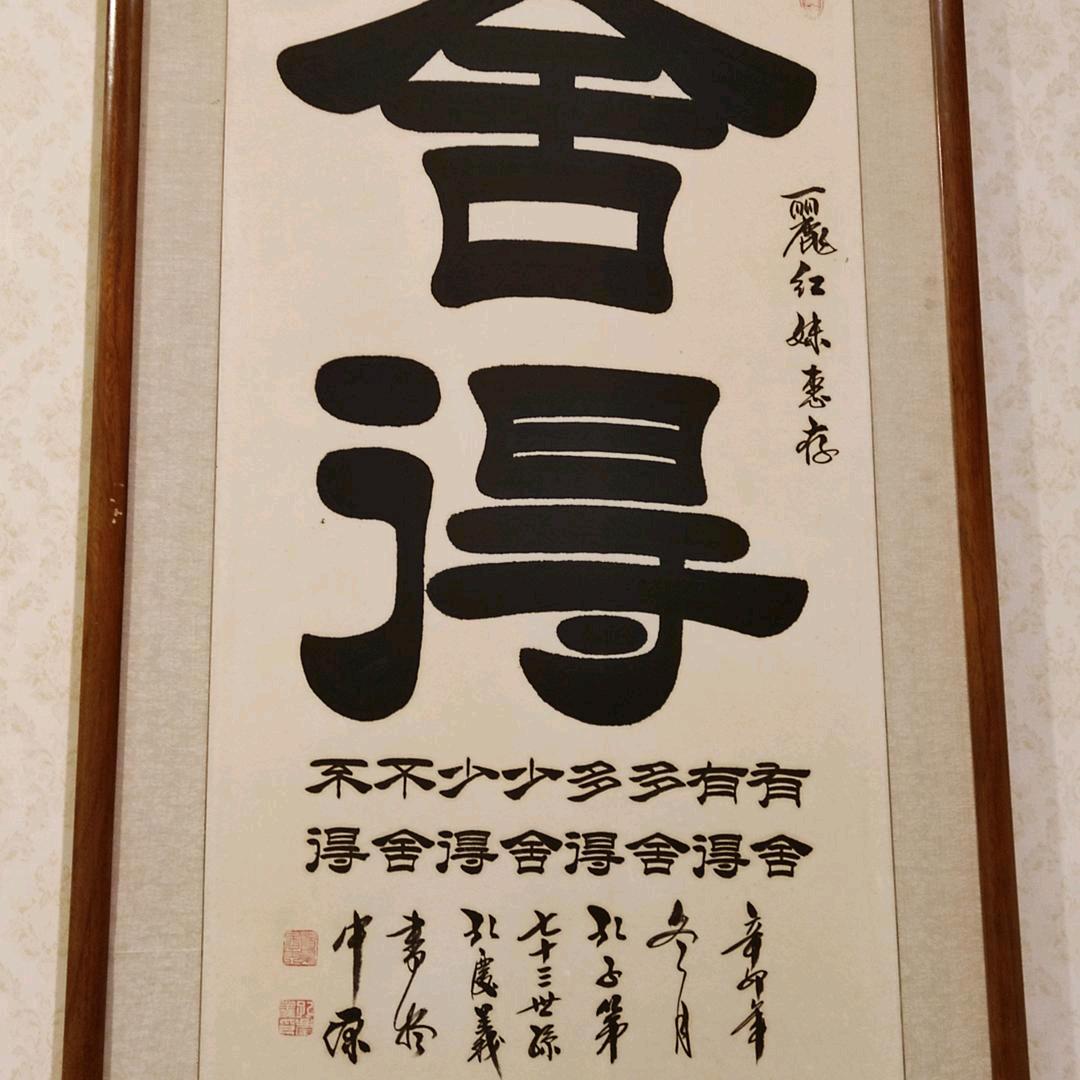 舍得
麗红妹惠存
有舍
有得
多舍
多得
少舍
少得
不舍
不得
辛卯年
冬月
孔子第
七十三世孫
孔慶義
書於
中原